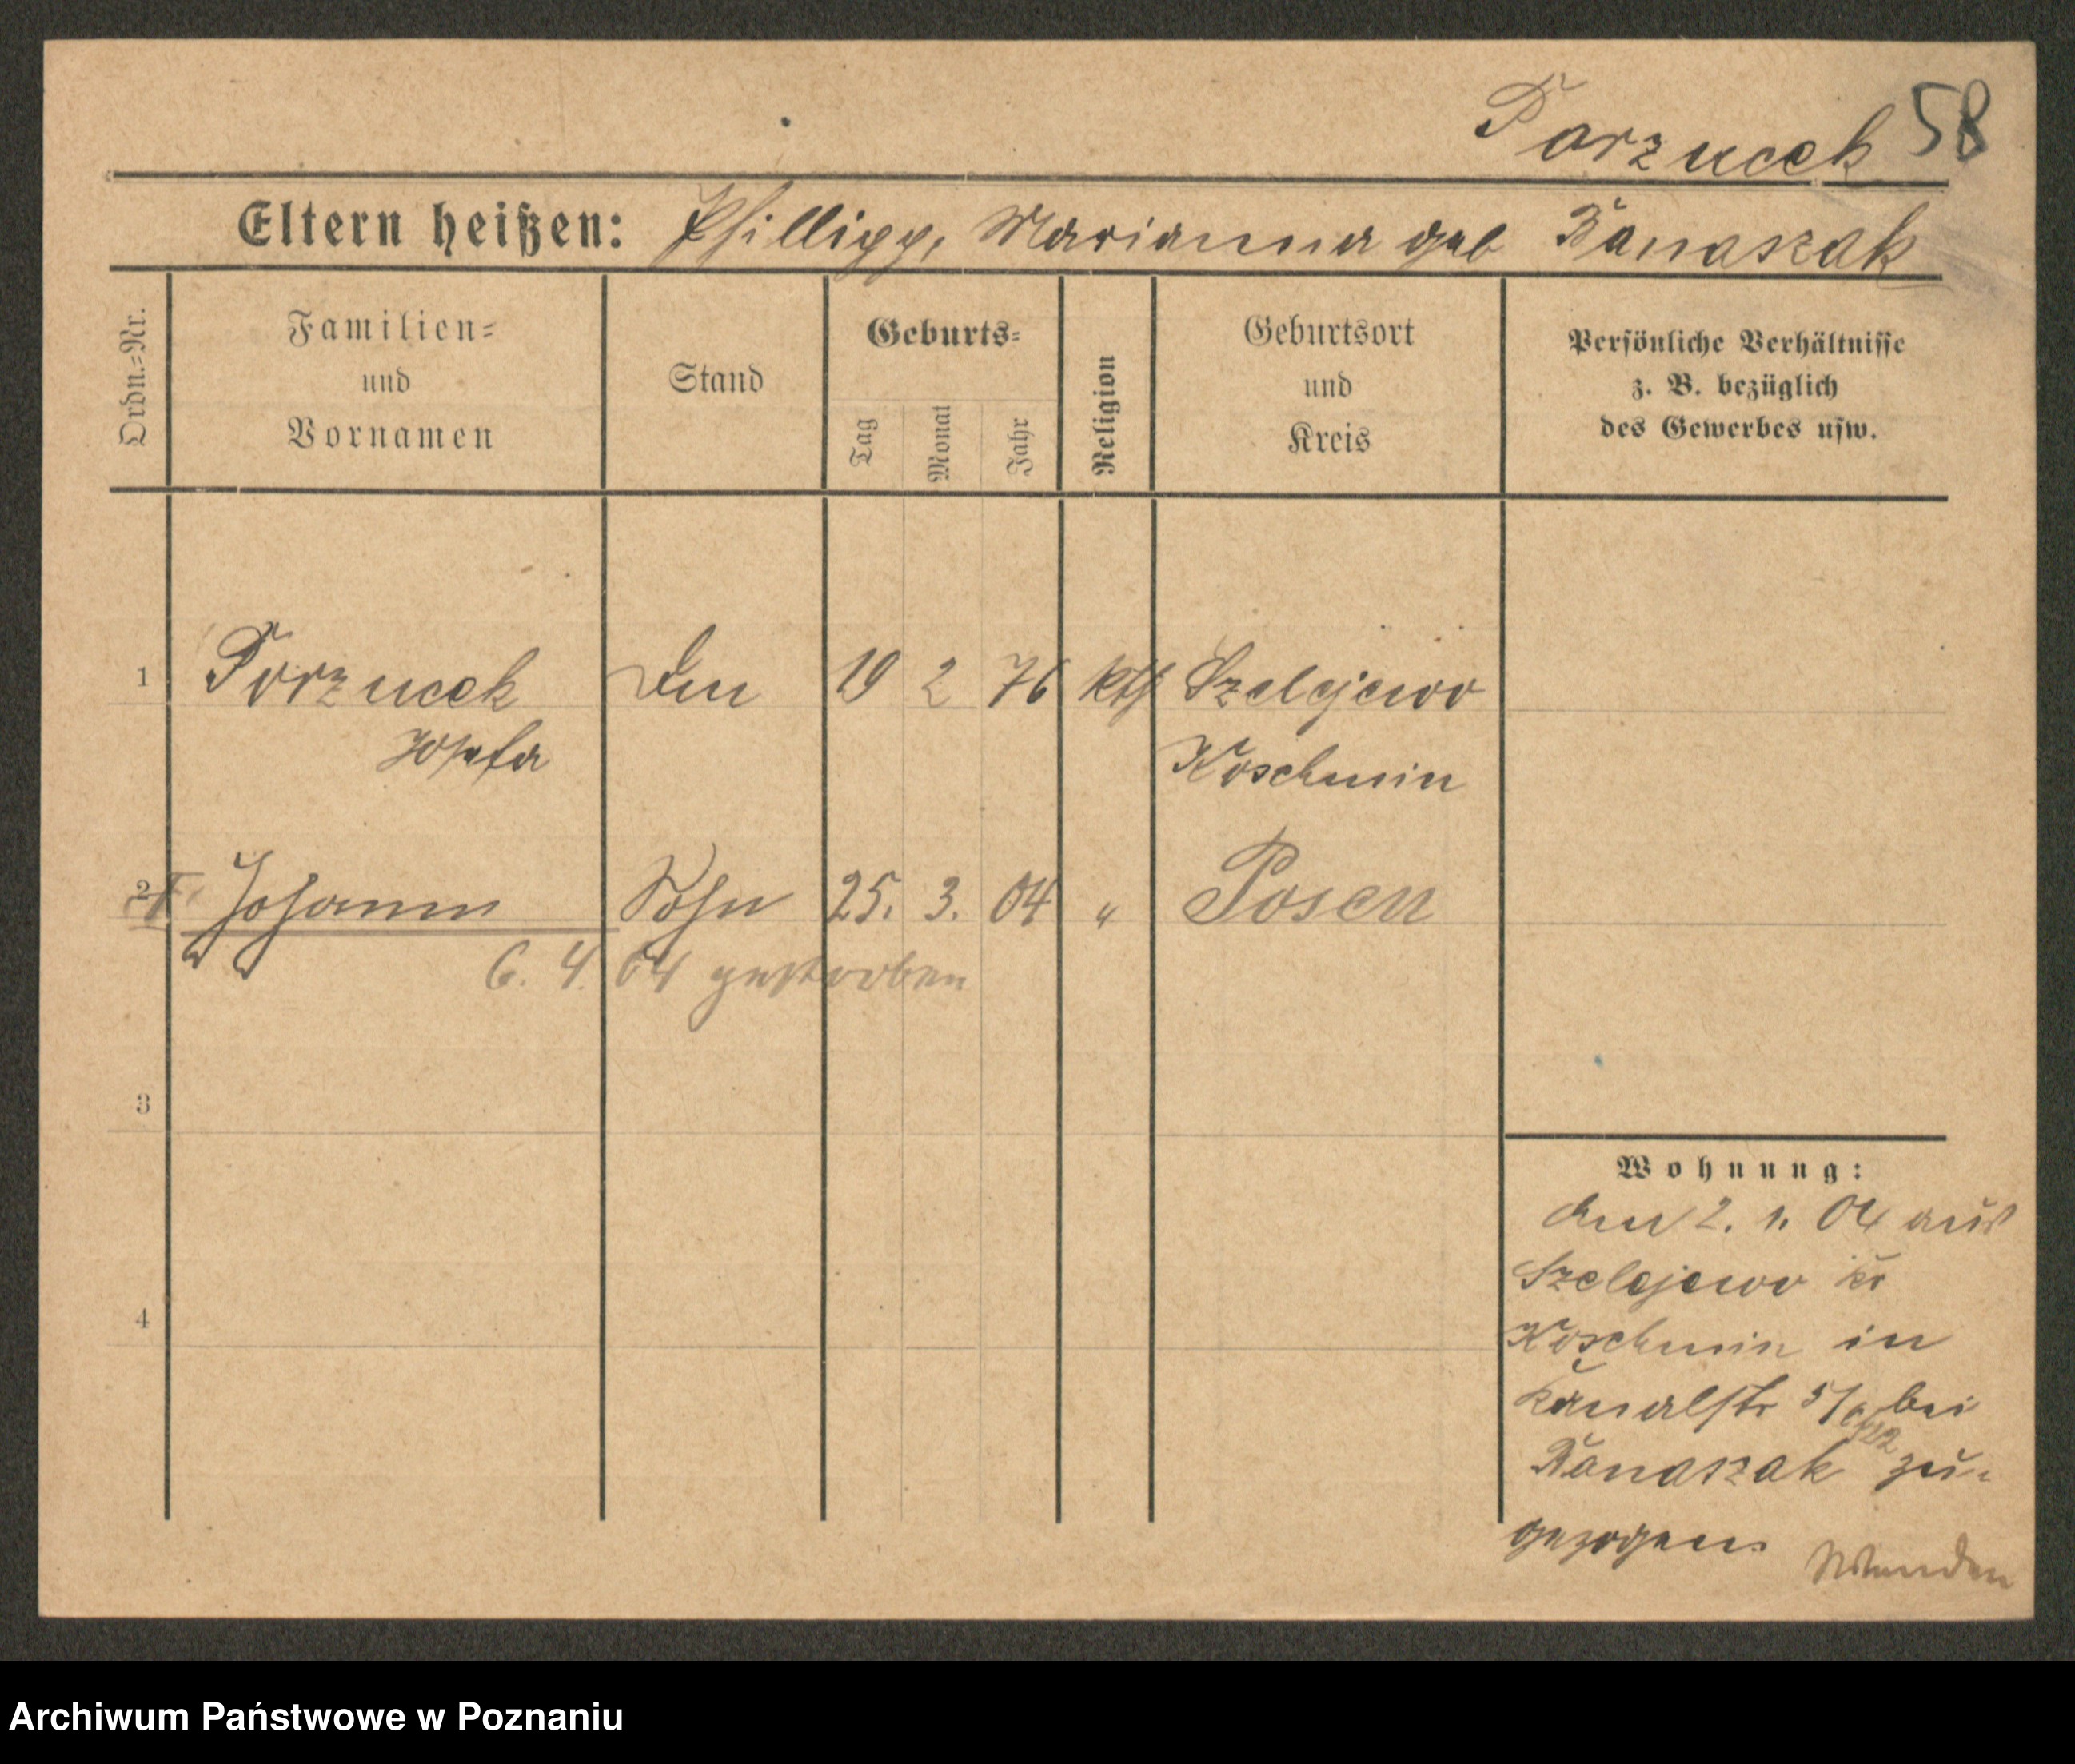 Porzucek 58
Eltern heißen: Phillipp, Marianna geb Banaszak
Ordn.=Nr.
Familien=
und
Vornamen
Stand
Geburts=
Tag
Monat
Jahr
Religion
Geburtsort
und
Kreis
Persönliche Verhältnisse
z. B. bezüglich
des Gewerbes usw.
1 Porzucek 19 2 76 kth Szelejewo
Josefa Koschmin
2 Johann Sohn 25. 3. 04 " Posen
6. 4. 04 gestorben
3
4
Wohnung:
den 2. 1. 04 aus
Szelejewo Kr
Koschmin in
Kanalstr bei
Banaszak zu-
gezogen.
Wenden
Archiwum Państwowe w Poznaniu